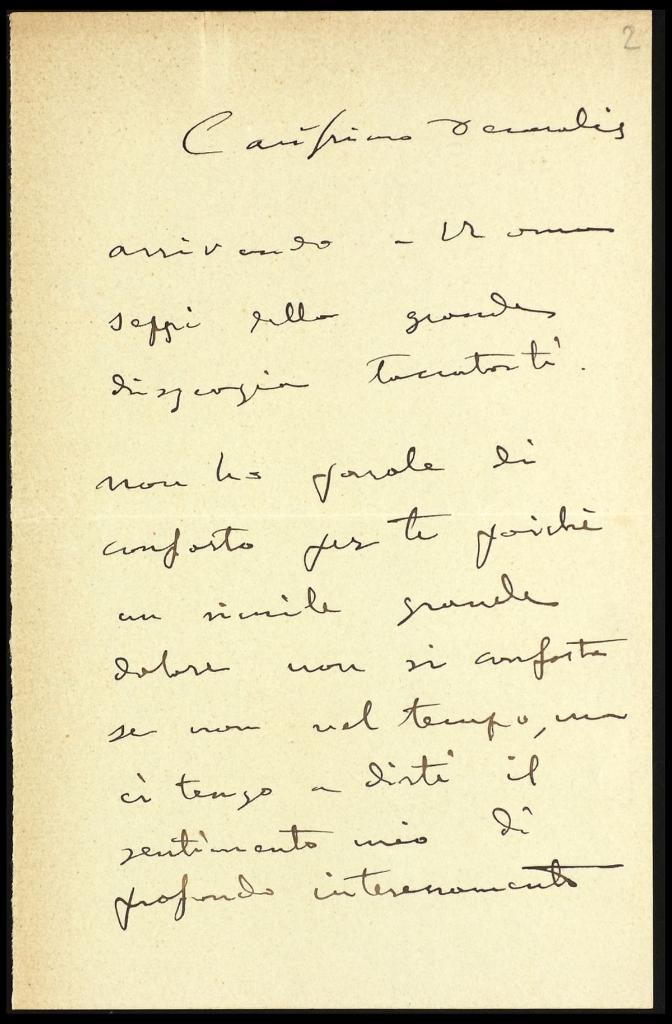 2
Carissimo Denealis
arrivando a Roma
seppi della grande
disgrazia toccatati.
non ho parole di
conforto per te poichè
un simile grande
dolore non si conforta
se non nel tempo, ma
ci tengo a dirti il
sentimento mio di
profondo interessamento